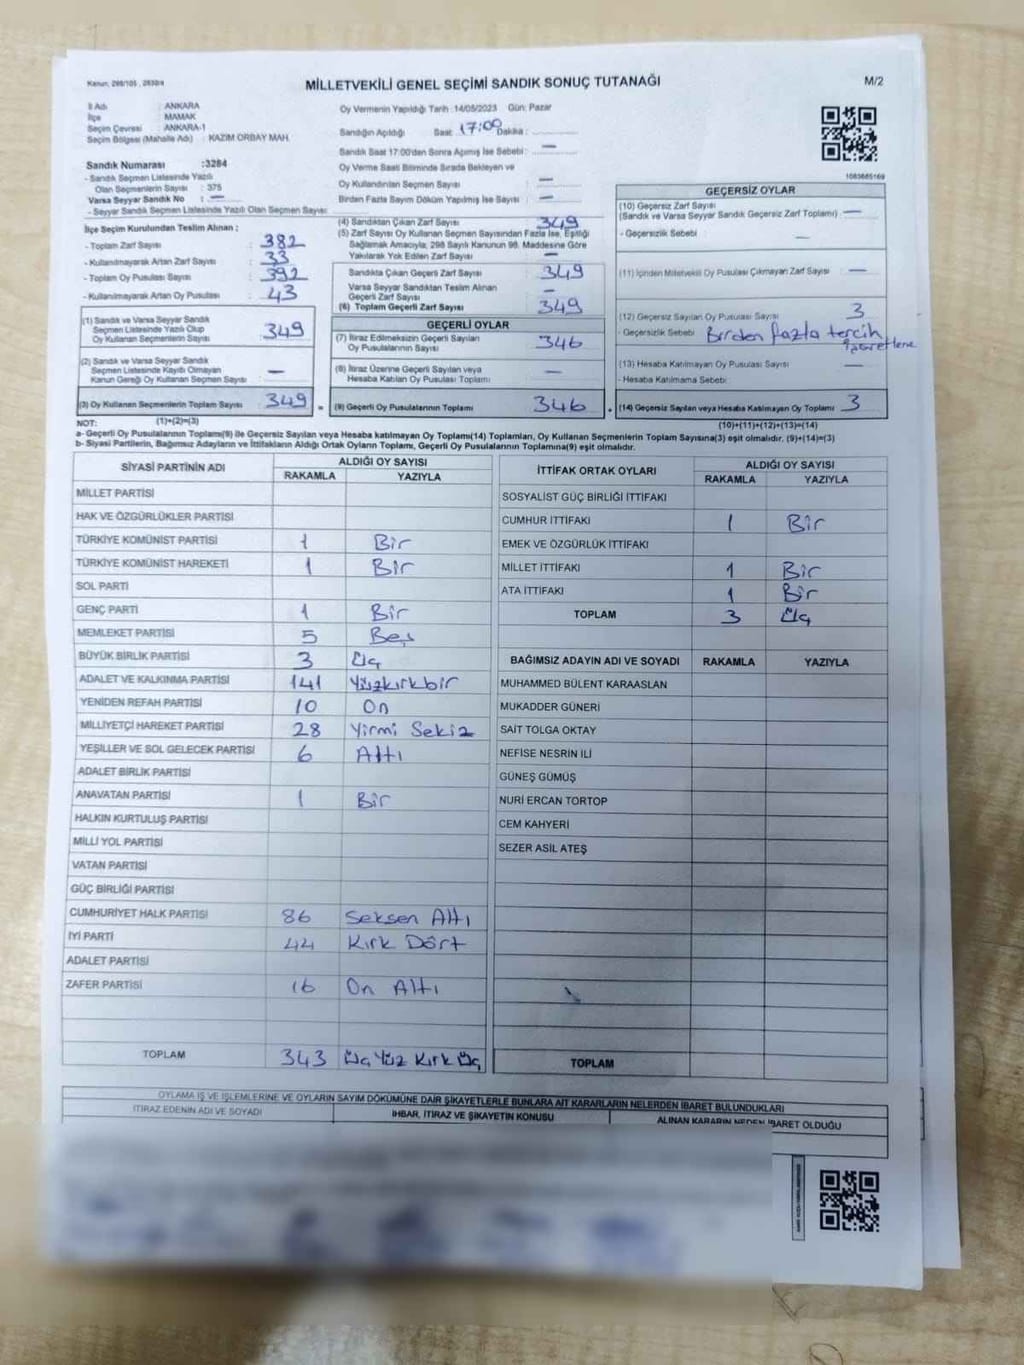 Kanun: 298/105 , 2839/4
MİLLETVEKİLİ GENEL SEÇİMİ SANDIK SONUÇ TUTANAĞI
M/2
İl Adı : ANKARA
İlçe : MAMAK
Seçim Çevresi : ANKARA-1
Seçim Bölgesi (Mahalle Adı) : KAZIM ORBAY MAH.
Oy Vermenin Yapıldığı Tarih :14/05/2023 Gün: Pazar
Sandığın Açıldığı Saat: 17:00 Dakika :
Sandık Saat 17:00'dan Sonra Açılmış İse Sebebi: —
Oy Verme Saati Bitiminde Sırada Bekleyen ve
Oy Kullandırılan Seçmen Sayısı —
Birden Fazla Sayım Döküm Yapılmış İse Sayısı —
1083685169
Sandık Numarası :3284
- Sandık Seçmen Listesinde Yazılı
Olan Seçmenlerin Sayısı : 375
Varsa Seyyar Sandık No : —
- Seyyar Sandık Seçmen Listesinde Yazılı Olan Seçmen Sayısı:
İlçe Seçim Kurulundan Teslim Alınan ;
- Toplam Zarf Sayısı : 382
- Kullanılmayarak Artan Zarf Sayısı : 33
- Toplam Oy Pusulası Sayısı : 392
- Kullanılmayarak Artan Oy Pusulası : 43
(1) Sandık ve Varsa Seyyar Sandık
Seçmen Listesinde Yazılı Olup
Oy Kullanan Seçmenlerin Sayısı : 349
(2) Sandık ve Varsa Seyyar Sandık
Seçmen Listesinde Kaydı Olmayan
Kanun Gereği Oy Kullanan Seçmen Sayısı : —
(3) Oy Kullanan Seçmenlerin Toplam Sayısı : 349
(4) Sandıktan Çıkan Zarf Sayısı 349
(5) Zarf Sayısı Oy Kullanan Seçmen Sayısından Fazla İse, Eşitliği
Sağlamak Amacıyla; 298 Sayılı Kanunun 98. Maddesine Göre
Yakılarak Yok Edilen Zarf Sayısı —
Sandıkta Çıkan Geçerli Zarf Sayısı 349
Varsa Seyyar Sandıktan Teslim Alınan
Geçerli Zarf Sayısı —
(6) Toplam Geçerli Zarf Sayısı 349
GEÇERLİ OYLAR
(7) İtiraz Edilmeksizin Geçerli Sayılan
Oy Pusulalarının Sayısı 346
(8) İtiraz Üzerine Geçerli Sayılan veya
Hesaba Katılan Oy Pusulası Toplamı —
= (9) Geçerli Oy Pusulalarının Toplamı 346
GEÇERSİZ OYLAR
(10) Geçersiz Zarf Sayısı
(Sandık ve Varsa Seyyar Sandık Geçersiz Zarf Toplamı) —
- Geçersizlik Sebebi : —
(11) İçinden Milletvekili Oy Pusulası Çıkmayan Zarf Sayısı —
(12) Geçersiz Sayılan Oy Pusulası Sayısı 3
- Geçersizlik Sebebi : Birden fazla tercih
işaretleme
(13) Hesaba Katılmayan Oy Pusulası Sayısı —
- Hesaba Katılmama Sebebi:
(14) Geçersiz Sayılan veya Hesaba Katılmayan Oy Toplamı 3
NOT: (1)+(2)=(3)
(10)+(11)+(12)+(13)=(14)
a- Geçerli Oy Pusulalarının Toplamı(9) ile Geçersiz Sayılan veya Hesaba katılmayan Oy Toplamı(14) Toplamları, Oy Kullanan Seçmenlerin Toplam Sayısına(3) eşit olmalıdır. (9)+(14)=(3)
b- Siyasi Partilerin, Bağımsız Adayların ve İttifakların Aldığı Ortak Oyların Toplamı, Geçerli Oy Pusulalarının Toplamına(9) eşit olmalıdır.
SİYASİ PARTİNİN ADI
ALDIĞI OY SAYISI
RAKAMLA YAZIYLA
MİLLET PARTİSİ
HAK VE ÖZGÜRLÜKLER PARTİSİ
TÜRKİYE KOMÜNİST PARTİSİ 1 Bir
TÜRKİYE KOMÜNİST HAREKETİ 1 Bir
SOL PARTİ
GENÇ PARTİ 1 Bir
MEMLEKET PARTİSİ 5 Beş
BÜYÜK BİRLİK PARTİSİ 3 Üç
ADALET VE KALKINMA PARTİSİ 141 Yüzkırkbir
YENİDEN REFAH PARTİSİ 10 On
MİLLİYETÇİ HAREKET PARTİSİ 28 Yirmi Sekiz
YEŞİLLER VE SOL GELECEK PARTİSİ 6 Altı
ADALET BİRLİK PARTİSİ
ANAVATAN PARTİSİ 1 Bir
HALKIN KURTULUŞ PARTİSİ
MİLLİ YOL PARTİSİ
VATAN PARTİSİ
GÜÇ BİRLİĞİ PARTİSİ
CUMHURİYET HALK PARTİSİ 86 Seksen Altı
İYİ PARTİ 44 Kırk Dört
ADALET PARTİSİ
ZAFER PARTİSİ 16 On Altı
TOPLAM 343 Üç Yüz Kırk Üç
İTTİFAK ORTAK OYLARI
ALDIĞI OY SAYISI
RAKAMLA YAZIYLA
SOSYALİST GÜÇ BİRLİĞİ İTTİFAKI
CUMHUR İTTİFAKI 1 Bir
EMEK VE ÖZGÜRLÜK İTTİFAKI
MİLLET İTTİFAKI 1 Bir
ATA İTTİFAKI 1 Bir
TOPLAM 3 Üç
BAĞIMSIZ ADAYIN ADI VE SOYADI RAKAMLA YAZIYLA
MUHAMMED BÜLENT KARAASLAN
MUKADDER GÜNERİ
SAİT TOLGA OKTAY
NEFİSE NESRİN İLİ
GÜNEŞ GÜMÜŞ
NURİ ERCAN TORTOP
CEM KAHYERİ
SEZER ASİL ATEŞ
TOPLAM
OYLAMA İŞ VE İŞLEMLERİNE VE OYLARIN SAYIM DÖKÜMÜNE DAİR ŞİKAYETLERLE BUNLARA AİT KARARLARIN NELERDEN İBARET BULUNDUKLARI
İTİRAZ EDENİN ADI VE SOYADI
İHBAR, İTİRAZ VE ŞİKAYETİN KONUSU
ALINAN KARARIN NEDEN İBARET OLDUĞU